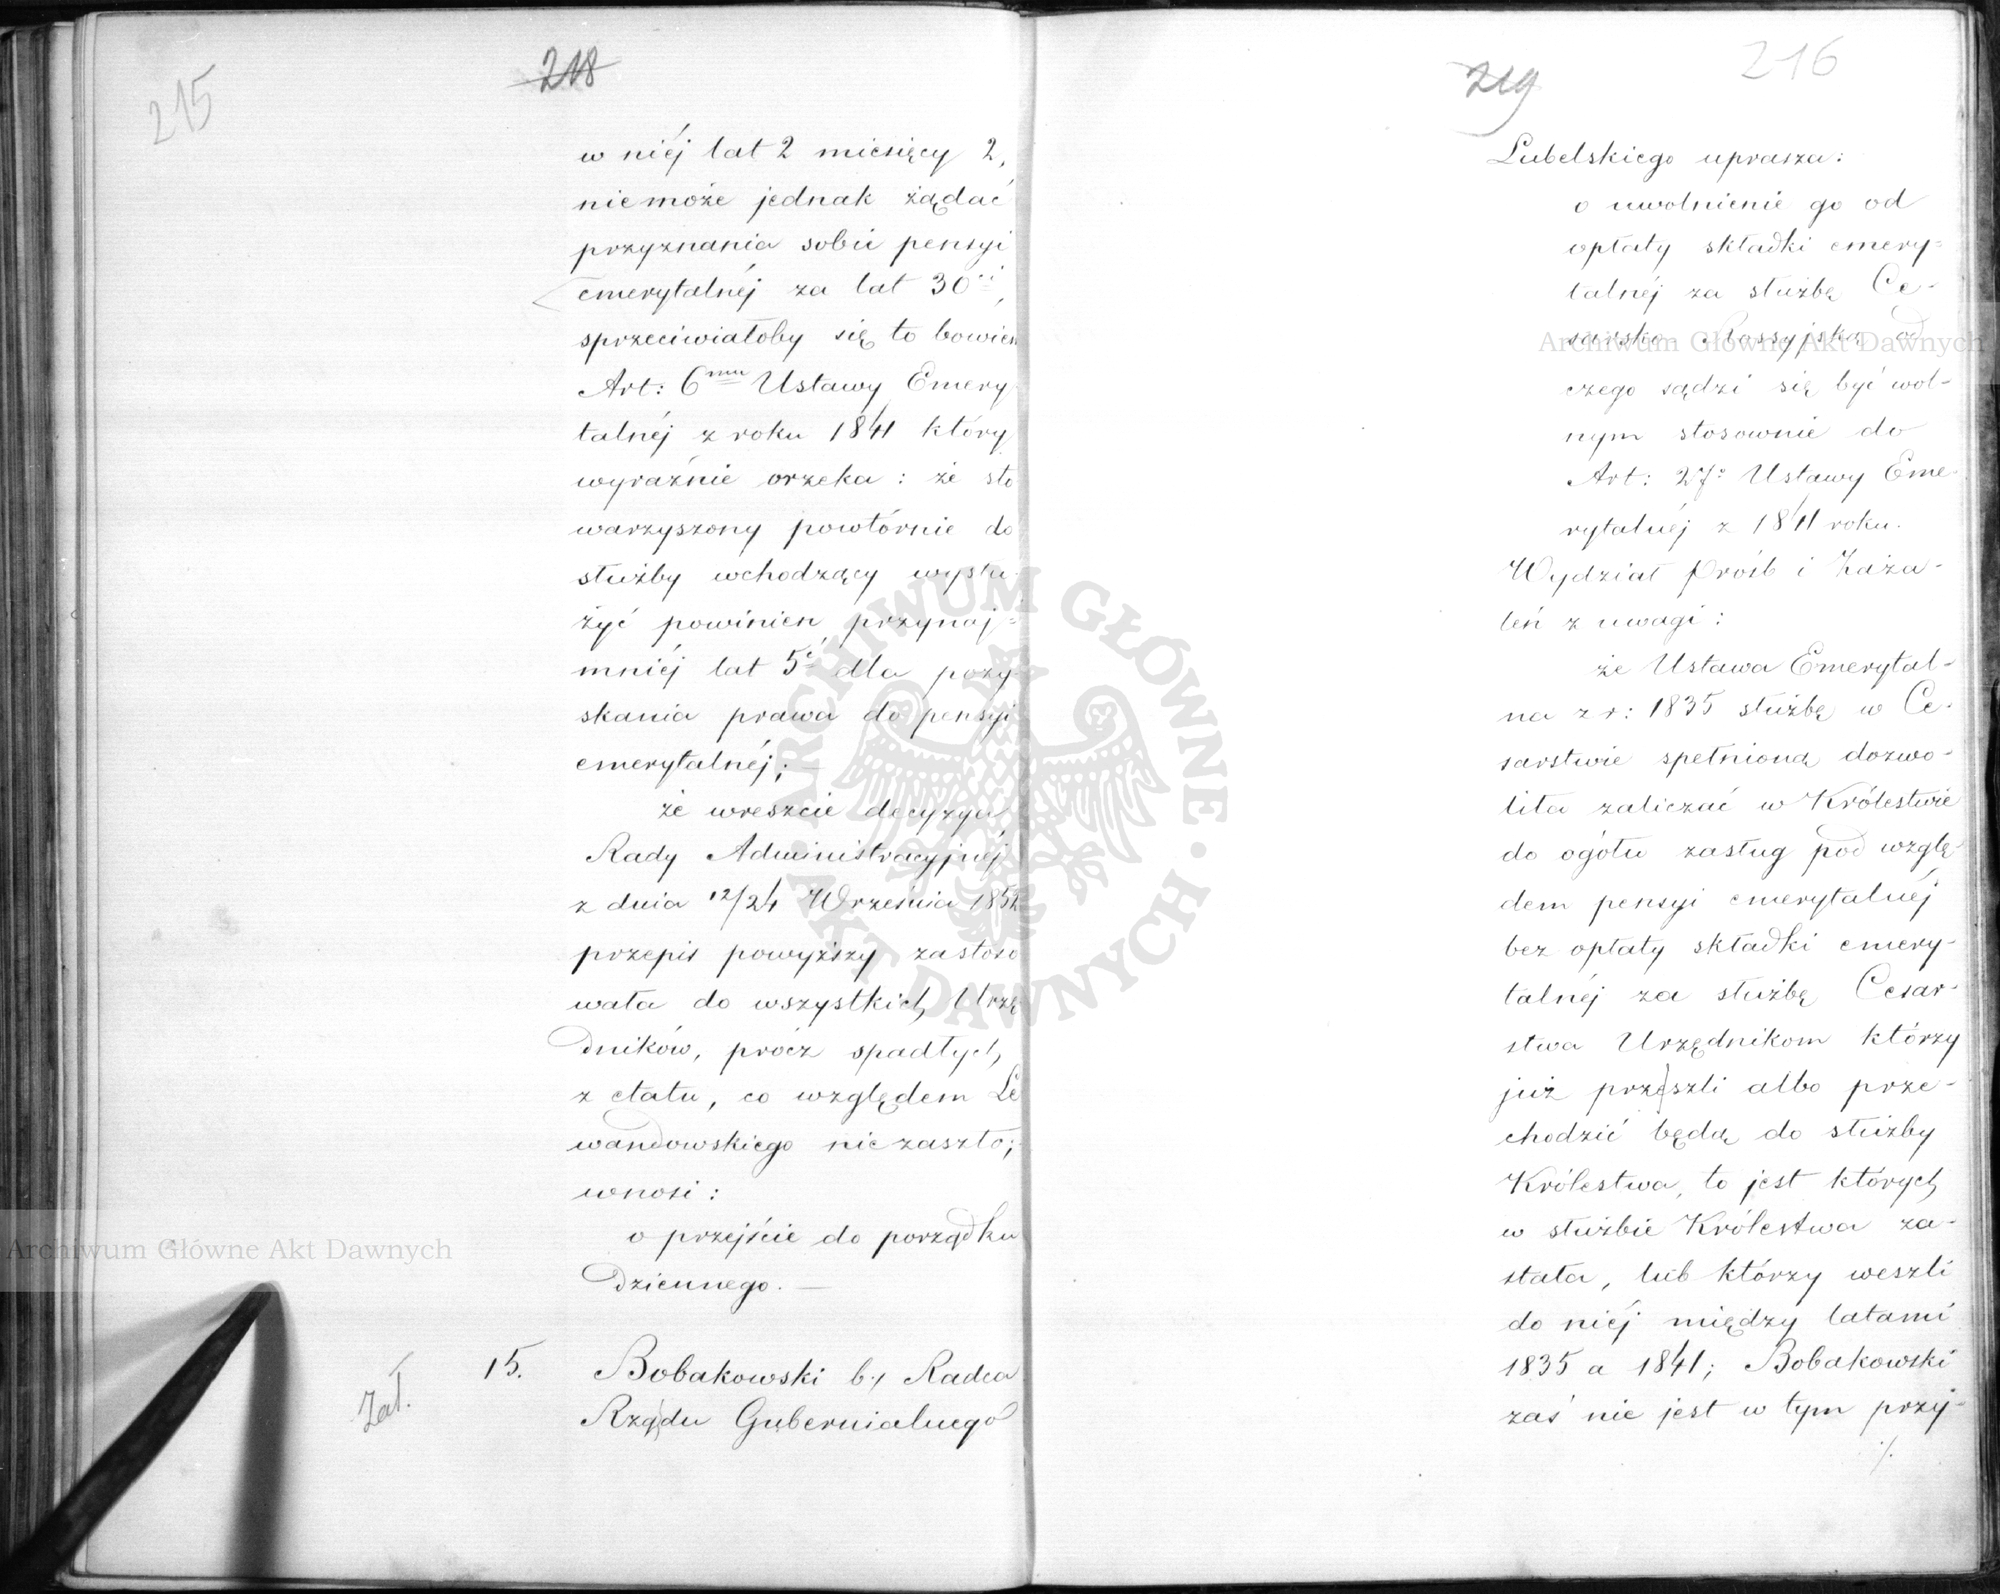 215
218
w niéj lat 2 miesięcy 2,
niemoże jednak żądać
przyznania sobie pensyi
emerytalnéj za lat 30ci,
sprzeciwiałoby się to bowiem
Art: 6mu Ustawy Emery
talnéj z roku 1841 który
wyraźnie orzeka: że sto
warzyszony powtórnie do
służby wchodzący wysłu-
żyć powinien przynaj=
mniéj lat 5ć dla pozy-
skania prawa do pensyi
emerytalnéj; —
że wreszcie decyzya
Rady Administracyjnéj
z dnia 12/24 Września 1852
przepis powyższy zastoso
wała do wszystkich Urzę
dników, prócz spadłych
z etatu, co względem Le
wandowskiego nie zaszło;
wnosi:
o przejście do porządku
dziennego. —
15. Bobakowski b: Radca
Rządu Gubernialnego
Zał.
219
216
Lubelskiego uprasza:
o uwolnienie go od
opłaty składki emery=
talnéj za służbę Ce-
sarsko-Rossyjską od
czego sądzi się być wol-
nym stosownie do
Art: 27o Ustawy Eme-
rytalnéj z 1841 roku.
Wydział Próśb i Zaża-
leń z uwagi:
że Ustawa Emerytal-
na z r: 1835 służbę w Ce-
sarstwie spełnioną dozwo-
liła zaliczać w Królestwie
do ogółu zasług pod wzglę-
dem pensyi emerytalnéj
bez opłaty składki emery-
talnéj za służbę Cesar-
stwa Urzędnikom którzy
już przeszli albo prze-
chodzić będą do służby
Królestwa, to jest których
w służbie Królestwa za-
stała, lub którzy weszli
do niéj między latami
1835 a 1841; Bobakowski
zaś nie jest w tym przy-
·/.
Archiwum Główne Akt Dawnych
Archiwum Główne Akt Dawnych
ARCHIWUM GŁÓWNE · AKT DAWNYCH ·